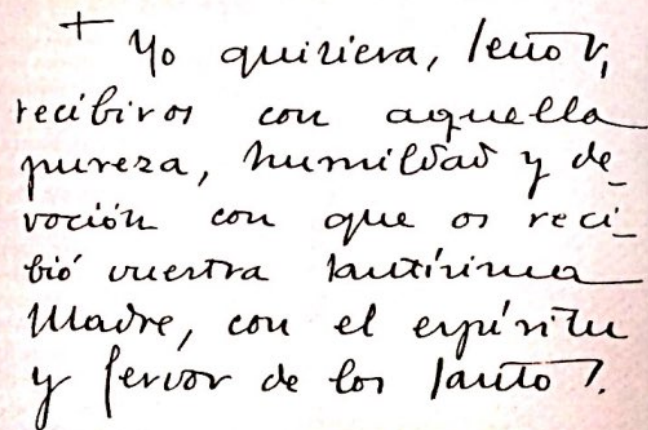 + Yo quisiera, Señor,
recibiros con aquella
pureza, humildad y de-
voción con que os reci-
bió vuestra Santísima
Madre, con el espíritu
y fervor de los Santos.